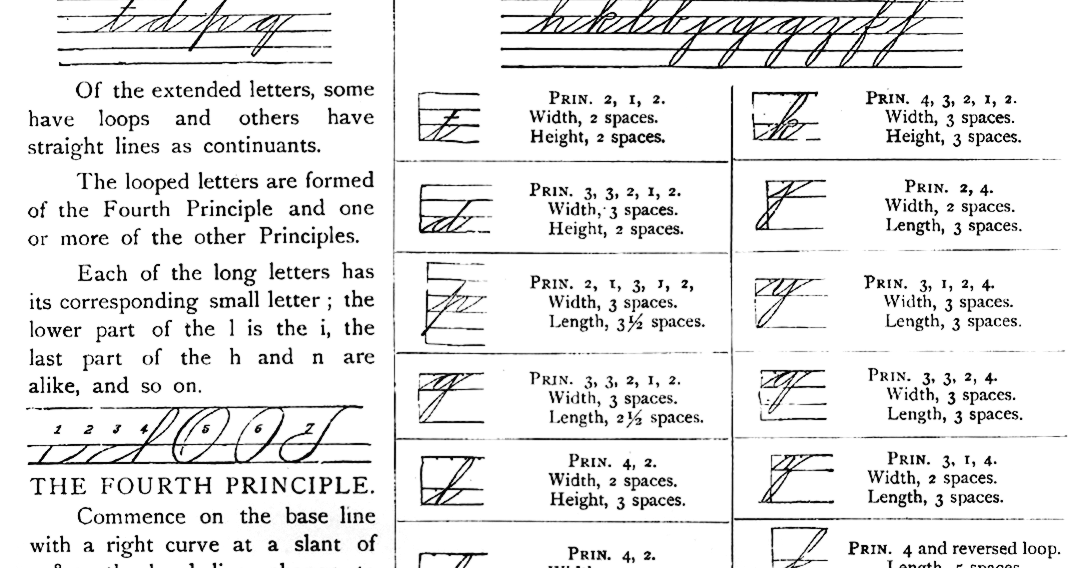 t d p q
h k l b j y g z f f
Of the extended letters, some
have loops and others have
straight lines as continuants.
The looped letters are formed
of the Fourth Principle and one
or more of the other Principles.
Each of the long letters has
its corresponding small letter ; the
lower part of the l is the i, the
last part of the h and n are
alike, and so on.
1 2 3 4 5 6 7
THE FOURTH PRINCIPLE.
Commence on the base line
with a right curve at a slant of
t
PRIN. 2, 1, 2.
Width, 2 spaces.
Height, 2 spaces.
d
PRIN. 3, 3, 2, 1, 2.
Width, 3 spaces.
Height, 2 spaces.
p
PRIN. 2, 1, 3, 1, 2,
Width, 3 spaces.
Length, 3½ spaces.
q
PRIN. 3, 3, 2, 1, 2.
Width, 3 spaces.
Length, 2½ spaces.
l
PRIN. 4, 2.
Width, 2 spaces.
Height, 3 spaces.
PRIN. 4, 2.
k
PRIN. 4, 3, 2, 1, 2.
Width, 3 spaces.
Height, 3 spaces.
j
PRIN. 2, 4.
Width, 2 spaces.
Length, 3 spaces.
y
PRIN. 3, 1, 2, 4.
Width, 3 spaces.
Length, 3 spaces.
g
PRIN. 3, 3, 2, 4.
Width, 3 spaces.
Length, 3 spaces.
z
PRIN. 3, 1, 4.
Width, 2 spaces.
Length, 3 spaces.
f
PRIN. 4 and reversed loop.
Length, 5 spaces